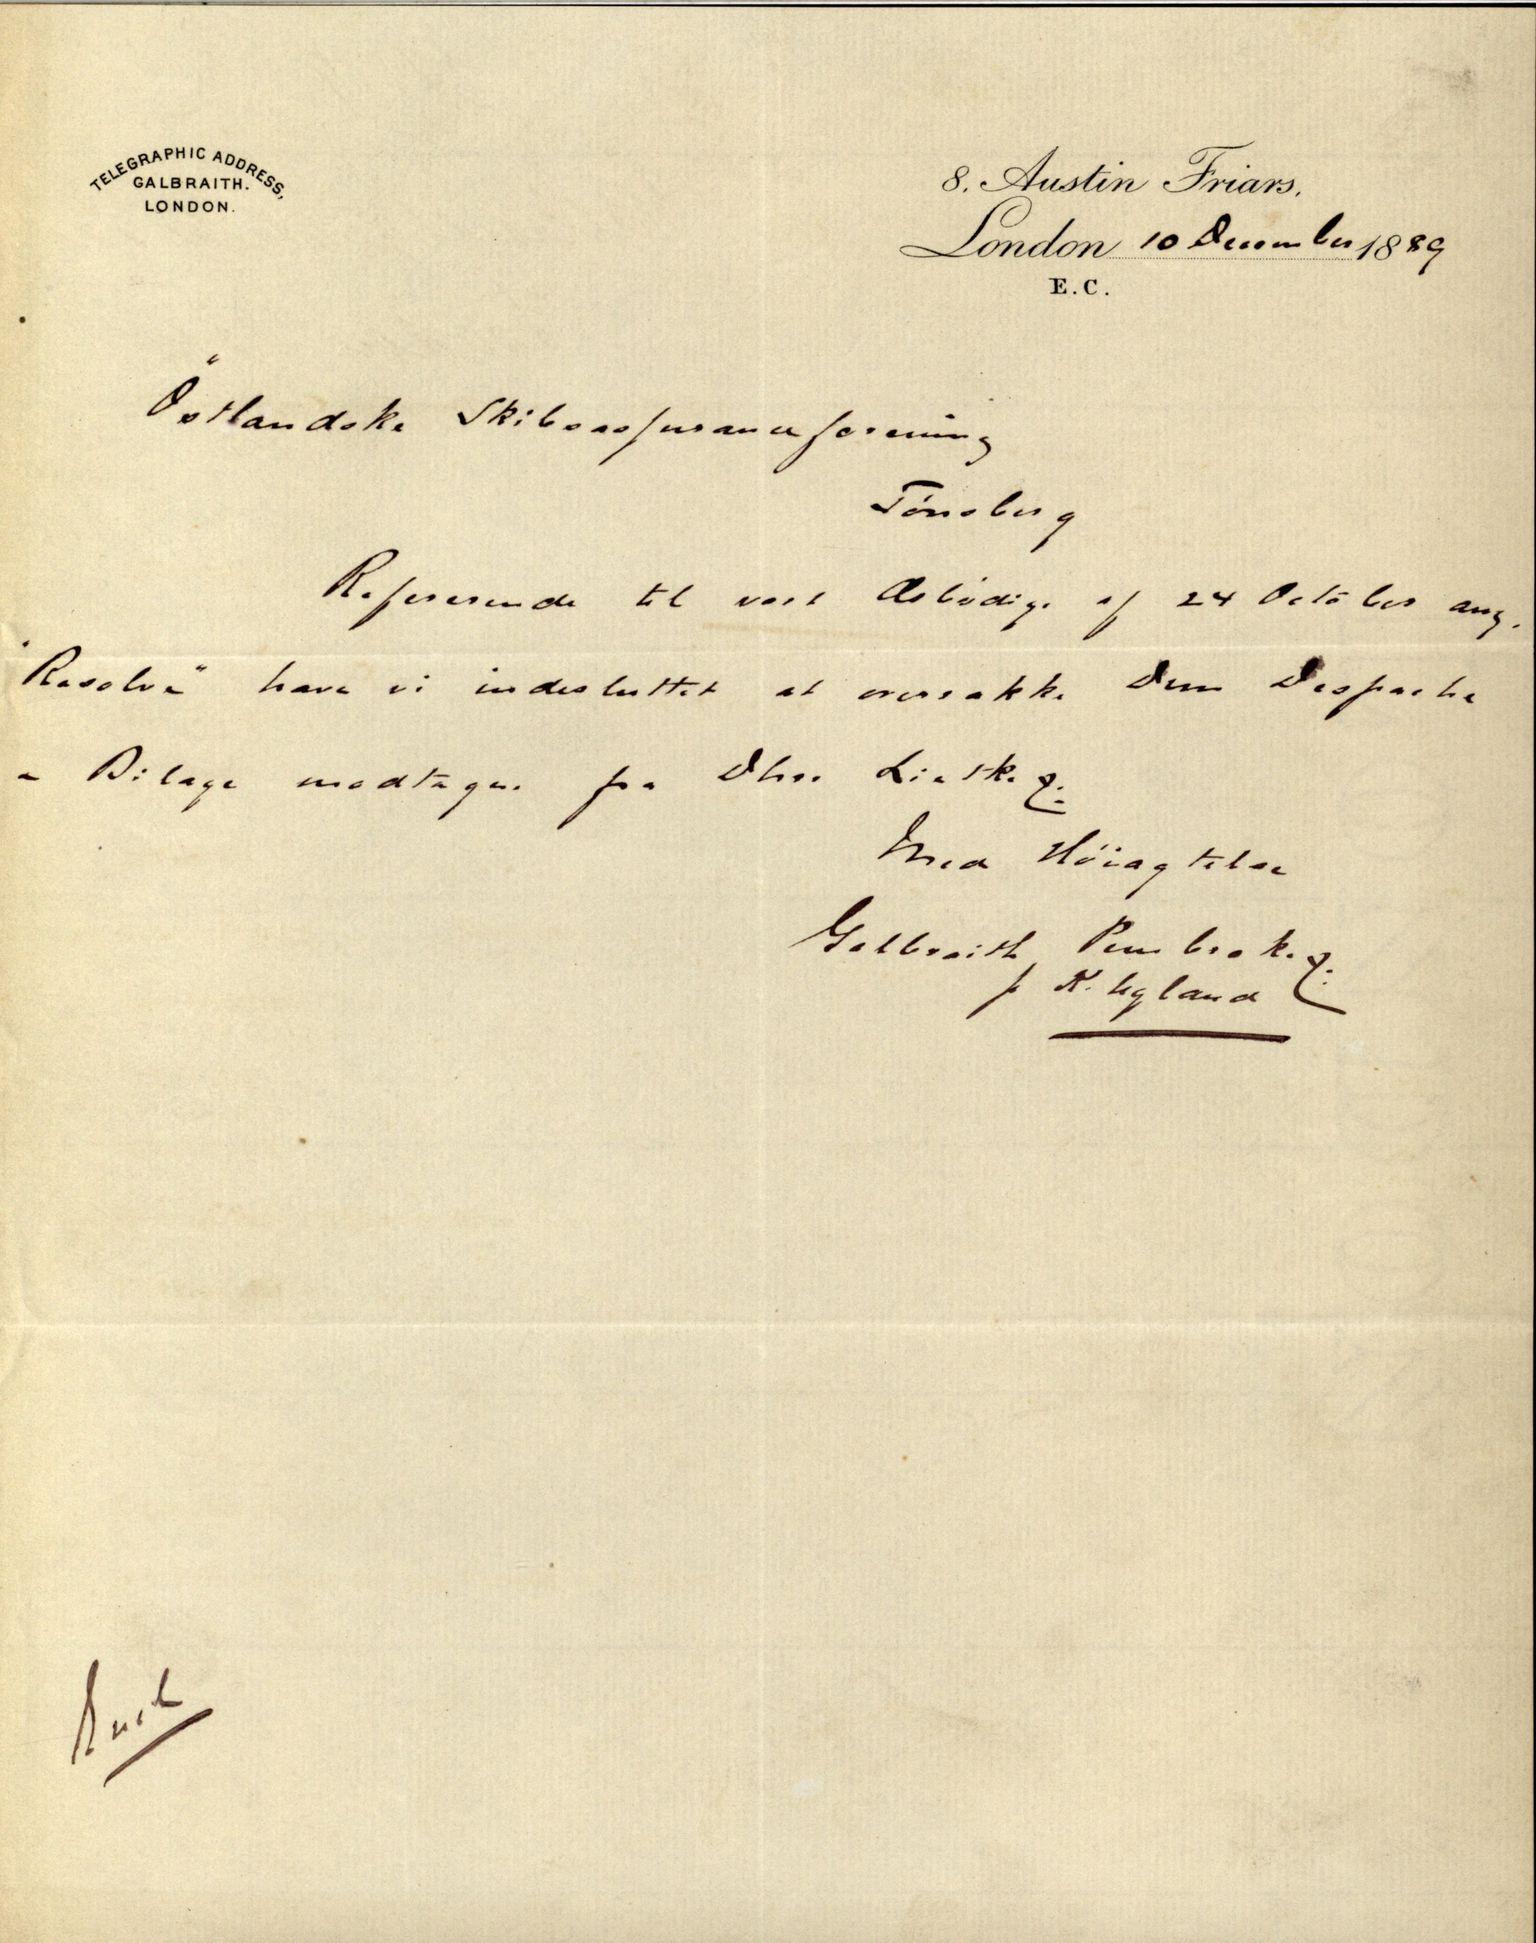 TELEGRAPHIC ADDRESS,
GALBRAITH.
LONDON.
8, Austin Friars,
London 10 December 1889
E.C.
Östlandske Skibsassuranceforening
Tönsberg
Refererende til vort Ærbödige af 24 October ang.
"Resolve" have vi indesluttet at oversække Dem Despache
& Bilage modtagne fra Dhrr
Med Höiagtelse
Galbraith Pembroke
p K. Ugland